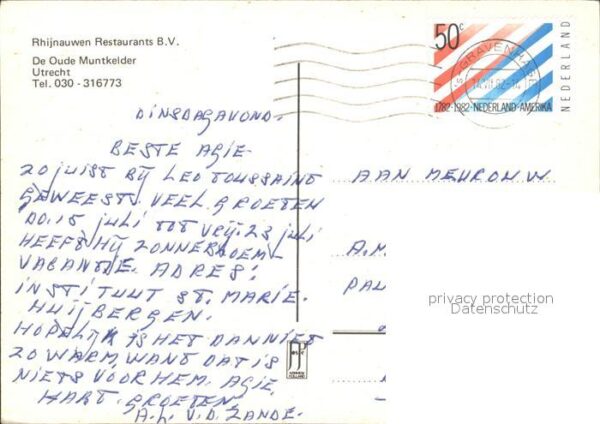 Rhijnauwen Restaurants B.V.
De Oude Muntkelder
Utrecht
Tel. 030 - 316773
50c
NEDERLAND
'S-GRAVENHAGE
14.VII.82-14
1782-1982-NEDERLAND-AMERIKA
DINSDAGAVOND-
BESTE AGIE-
ZO JUIST BIJ LEO TOUSSAINT
GEWEEST. VEEL GROETEN
DO. 15 juli TOT VRIJ. 23 juli
HEEFT HIJ ZONNEBLOEM-
VACANTIE. ADRES:
INSTITUUT ST. MARIE.
HUIJBERGEN.
HOPELIJK IS HET DAN NIET
ZO WARM, WANT DAT IS
NIETS VOOR HEM. AGIE,
HART. GROETEN,
A.L. V.D. ZANDE-
AAN MEURON W
A.M.
PAL
privacy protection
Datenschutz